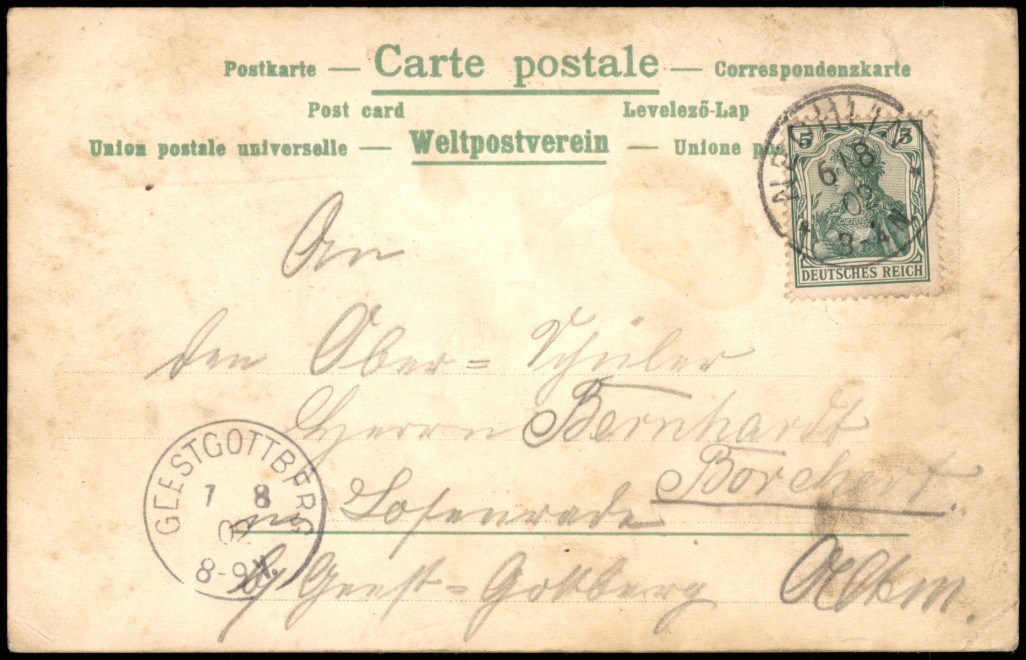 Postkarte — Carte postale — Correspondenzkarte
Post card Levelező-Lap
Union postale universelle — Weltpostverein — Unione
5 5
DEUTSCHES REICH
6/8
02
3-4N
An
den Ober=Schüler
Herrn Bernhardt
Borchert.
in Losenrade
b/ Geest=Gottberg Altm.
GEESTGOTTBERG
7 8
02
8-9V.